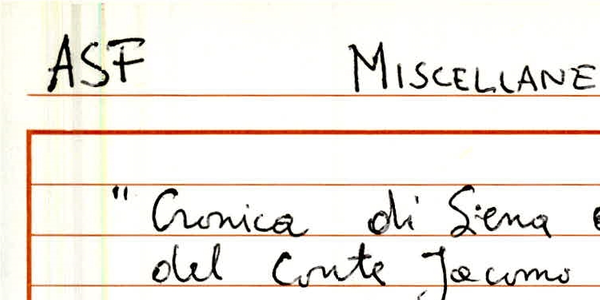 ASF MISCELLANE
" Cronica di Siena e
del Conte Jacomo